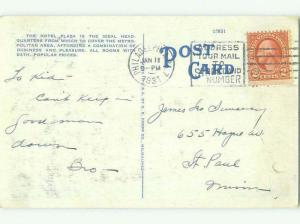 THE HOTEL PLAZA IS THE IDEAL HEAD-
QUARTERS FROM WHICH TO COVER THE METRO-
POLITAN AREA. AFFORDING A COMBINATION OF
BUSINESS AND PLEASURE. ALL ROOMS WITH
BATH. POPULAR PRICES.
POST
CARD
PHILADELPHIA
JAN 18
1931
ADDRESS
YOUR MAIL
TO
STREET AND
NUMBER
To Kid-
Can't keep
good man
down
Bro-
James Sweeney
655 Hague av
St. Paul
Minn